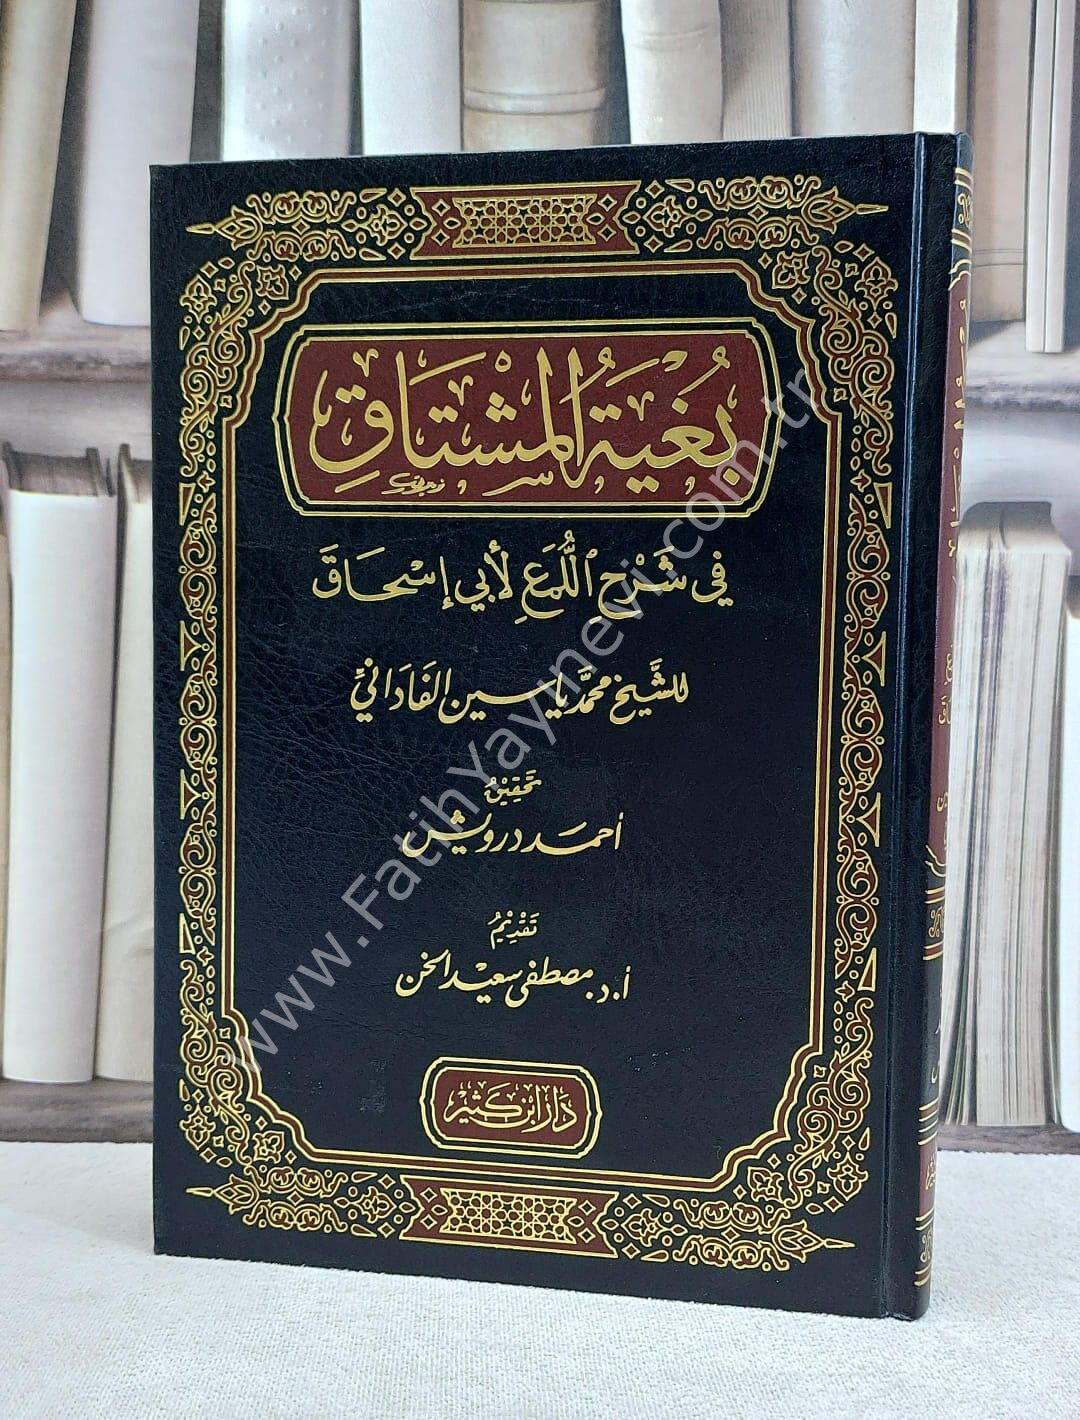 بُغْيَةُ المُشْتَاقِ
في شَرْحِ اللُّمَعِ لأَبي إِسْحَاقَ
للشَّيْخ محمَّد ياسين الفَادَانيِّ
تَحْقِيْقُ
أحمد درويش
تَقْدِيْمُ
أ.د. مصطفى سعيد الخن
دَار ابْن كَثِيْر
www.FatihYayinevi.com.tr